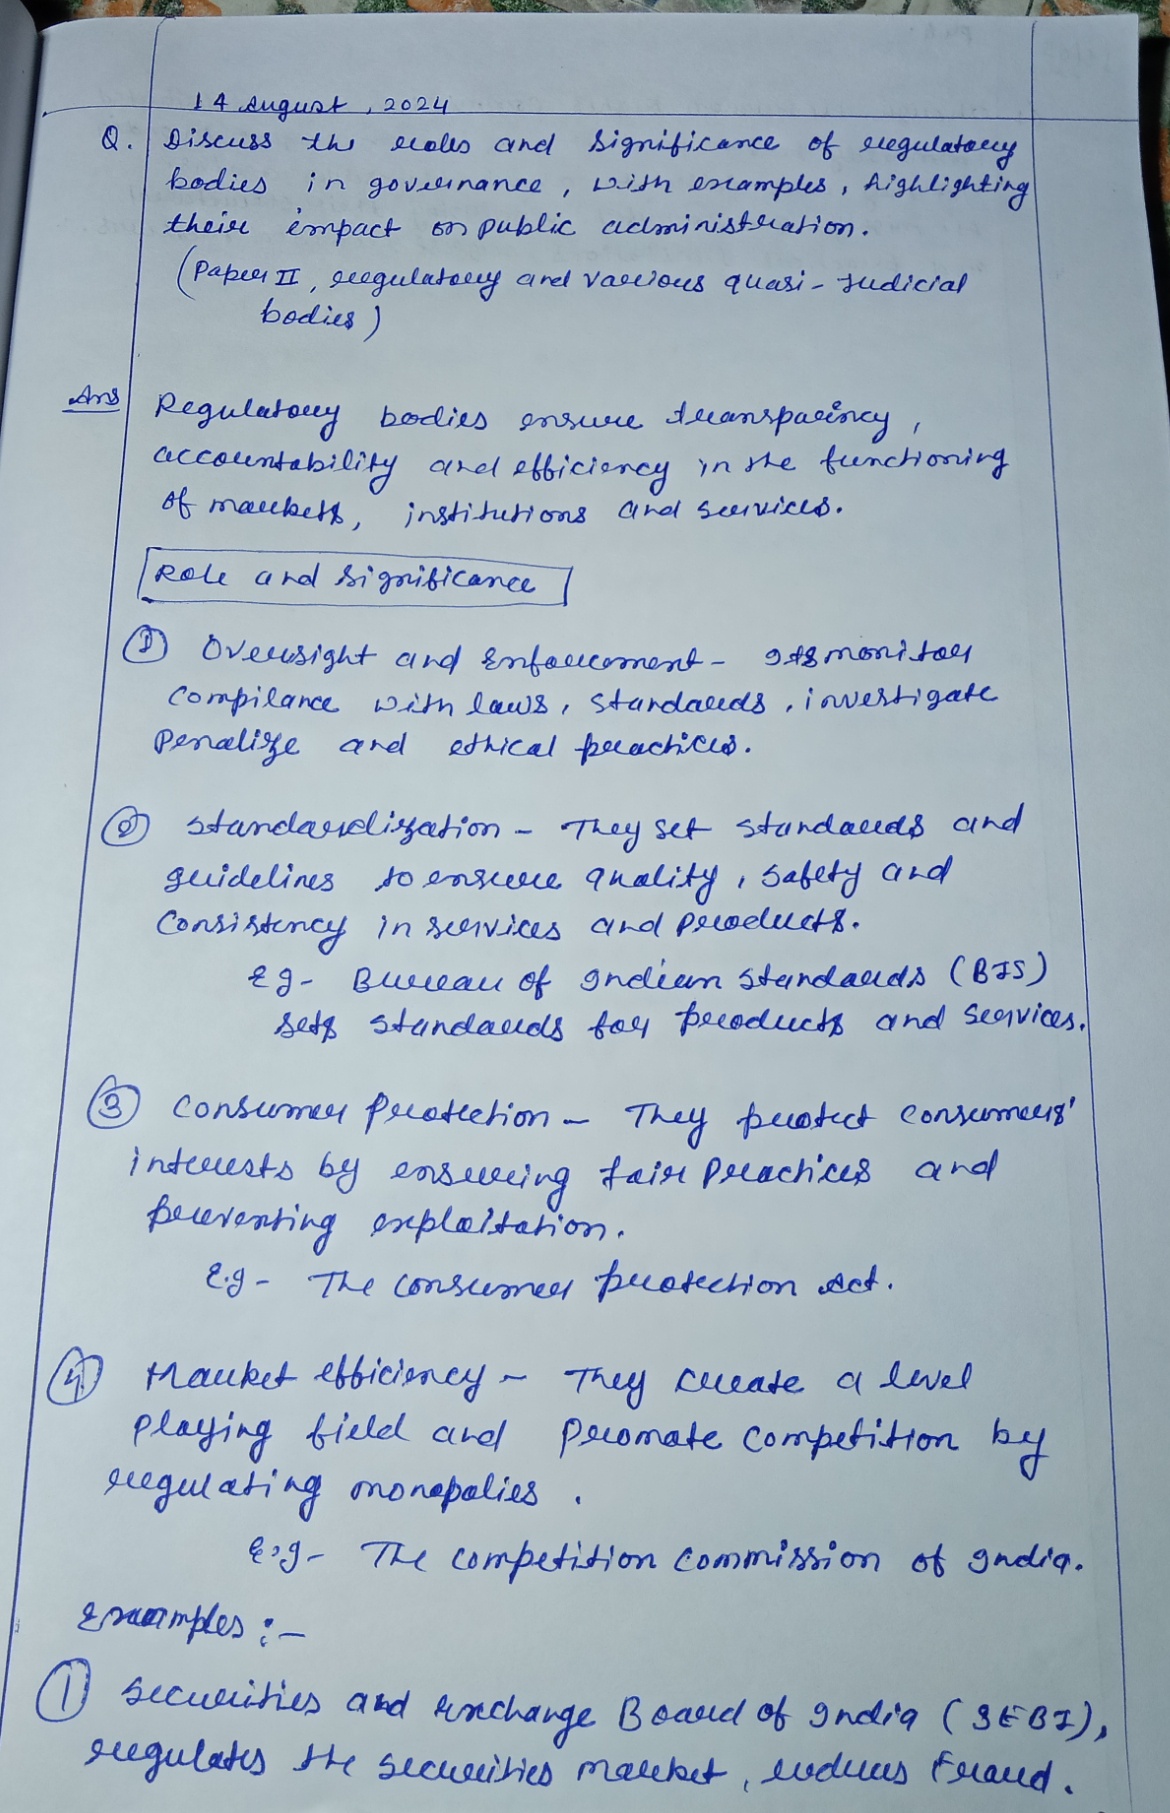 14 August, 2024
Q. Discuss the roles and significance of regulatory
bodies in governance, with examples, highlighting
their impact on public administration.
(Paper II, regulatory and various quasi-Judicial
bodies)
Ans Regulatory bodies ensure transparency,
accountability and efficiency in the functioning
of markets, institutions and services.
Role and Significance
① Oversight and Enforcement - Its monitor
compilance with laws, standards, investigate
penalize and ethical practices.
② Standardization - They set standards and
guidelines to ensure quality, safety and
consistency in services and products.
Eg- Bureau of Indian Standards (BIS)
sets standards for products and services.
③ Consumer Protection - They protect consumers'
interests by ensuring fair practices and
preventing exploitation.
E.g- The Consumer protection Act.
④ Market efficiency - They create a level
playing field and promote competition by
regulating monopolies.
E.g- The competition commission of India.
Examples :-
① Securities and Exchange Board of India (SEBI),
regulates the securities market, reduces Fraud.